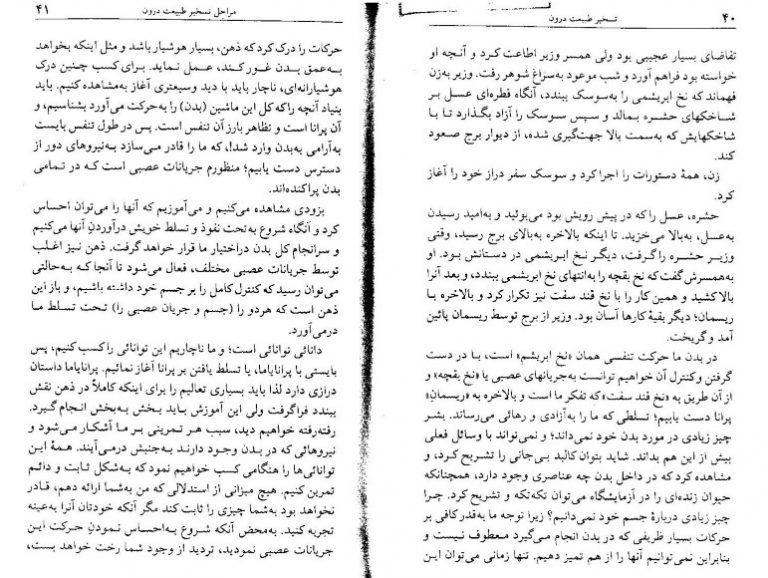 ۴۰ تسخیر طبیعت درون
تقاضای بسیار عجیبی بود ولی همسر وزیر اطاعت کرد و آنچه او
خواسته بود فراهم آورد و شب موعود به‌سراغ شوهر رفت. وزیر به‌زن
فهماند که نخ ابریشمی را به‌سوسک ببندد، آنگاه قطره‌ای عسل بر
شاخکهای حشره بمالد و سپس سوسک را آزاد بگذارد تا با
شاخکهایش که به‌سمت بالا جهت‌گیری شده، از دیوار برج صعود
کند.
زن، همهٔ دستورات را اجرا کرد و سوسک سفر دراز خود را آغاز
کرد.
حشره، عسل را که در پیش رویش بود می‌بوئید و به‌امید رسیدن
به‌عسل، به‌بالا می‌خزید. تا اینکه بالاخره به‌بالای برج رسید، وقتی
وزیر حشره را گرفت، دیگر نخ ابریشمی در دستانش بود. او
به‌همسرش گفت که نخ بقچه را به‌انتهای نخ ابریشمی ببندد، و بعد آنرا
بالا کشید و همین کار را با نخ قند سفت نیز تکرار کرد و بالاخره با
ریسمان؛ دیگر بقیهٔ کارها آسان بود. وزیر از برج توسط ریسمان پائین
آمد و گریخت.
در بدن ما حرکت تنفسی همان «نخ ابریشم» است، با در دست
گرفتن و کنترل آن خواهیم توانست به‌جریانهای عصبی یا «نخ بقچه» و
از آن طریق به «نخ قند سفت» که تفکر ما است و بالاخره به «ریسمان»
پرانا دست یابیم؛ تسلطی که ما را به‌آزادی و رهائی می‌رساند. بشر
چیز زیادی در مورد بدن خود نمی‌داند؛ و نمی‌تواند با وسائل فعلی
بیش از این هم بداند. شاید بتوان کالبد بی‌جانی را تشریح کرد، و
مشاهده کرد که در داخل بدن چه عناصری وجود دارد، همچنانکه
حیوان زنده‌ای را در آزمایشگاه می‌توان تکه‌تکه و تشریح کرد. چرا
چیز زیادی دربارهٔ جسم خود نمی‌دانیم؟ زیرا توجه ما به‌قدر کافی بر
حرکات بسیار ظریفی که در بدن انجام می‌گیرد معطوف نیست و
بنابراین نمی‌توانیم آنها را از هم تمیز دهیم. تنها زمانی می‌توان این
مراحل تسخیر طبیعت درون ۴۱
حرکات را درک کرد که ذهن، بسیار هوشیار باشد و مثل اینکه بخواهد
به‌عمق بدن غور کند، عمل نماید. برای کسب چنین درک
هوشیارانه‌ای، ناچار باید با دید وسیعتری آغاز به‌مشاهده کنیم. باید
بنیاد آنچه را که کل این ماشین (بدن) را به‌حرکت می‌آورد بشناسیم، و
آن پرانا است و تظاهر بارز آن تنفس است. پس در طول تنفس بایست
به‌آرامی به‌بدن وارد شد!، که ما را قادر می‌سازد به‌نیروهای دور از
دسترس دست یابیم؛ منظورم جریانات عصبی است که در تمامی
بدن پراکنده‌اند.
بزودی مشاهده می‌کنیم و می‌آموزیم که آنها را می‌توان احساس
کرد و آنگاه شروع به تحت نفوذ و تسلط خویش درآوردن آنها می‌کنیم
و سرانجام کل بدن دراختیار ما قرار خواهد گرفت. ذهن نیز اغلب
توسط جریانات عصبی مختلف، فعال می‌شود تا آنجا که به‌حالتی
می‌توان رسید که کنترل کامل را بر جسم خود داشته باشیم، و باز این
ذهن است که هردو را (جسم و جریان عصبی را) تحت تسلط ما
درمی‌آورد.
دانائی توانائی است؛ و ما ناچاریم این توانائی را کسب کنیم، پس
بایستی با پرانایاما، یا تسلط یافتن بر پرانا آغاز نمائیم. پرانایاما داستان
درازی دارد لذا باید بسیاری تعالیم را برای اینکه کاملاً در ذهن نقش
ببندد فراگرفت ولی این آموزش باید بخش به‌بخش انجام گیرد.
رفته‌رفته خواهیم دید، سبب هر تمرینی بر ما آشکار می‌شود و
نیروهائی که در بدن وجود دارند به‌جنبش درمی‌آیند. همهٔ این
توانائی‌ها را هنگامی کسب خواهیم نمود که به‌شکل ثابت و دائم
تمرین کنیم. هیچ میزانی از استدلالی که من به‌شما ارائه دهم، قادر
نخواهد بود به‌شما چیزی را ثابت کند مگر آنکه خودتان آنرا به‌عینه
تجربه کنید. به‌محض آنکه شروع به‌احساس نمودن حرکت این
جریانات عصبی نمودید، تردید از وجود شما رخت خواهد بست،